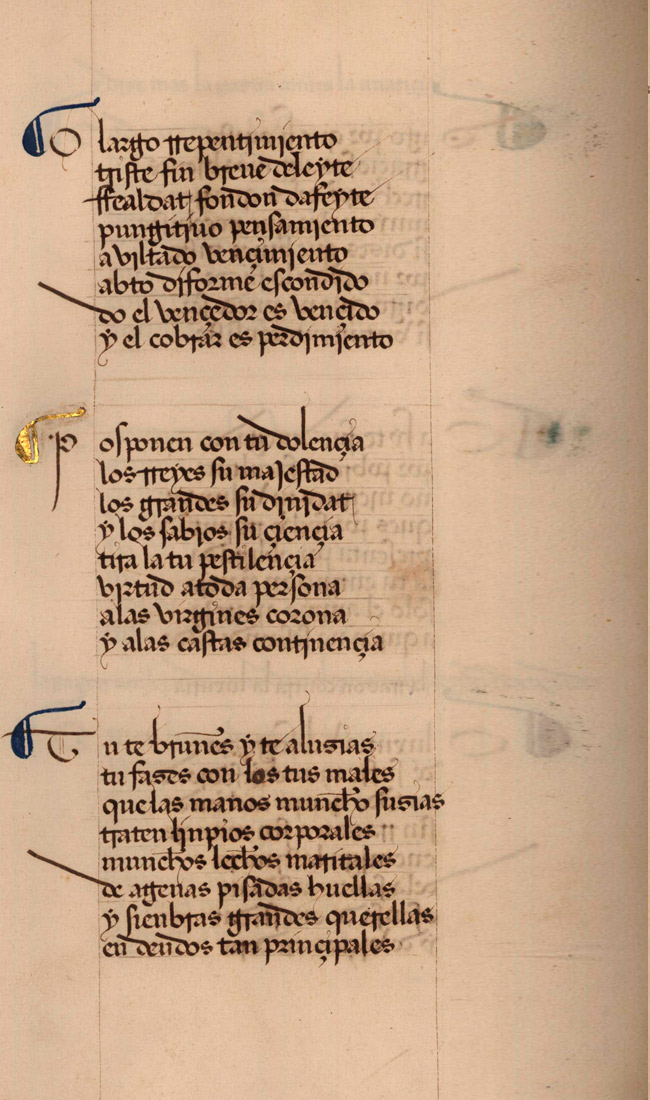 O largo rrepentimiento
triste fin breue deleyte
ffealdat fondon dafeyte
pungitiuo pensamiento
aviltado vençimiento
abto diforme escondido
do el vençedor es vençido
y el cobrar es perdimiento
Posponen con tu dolençia
los rreyes su majestad
los grandes su dinidat
y los sabios su çiençia
tira la tu pestilençia
virtud atoda persona
alas virgines corona
y alas castas continençia
Tu te bruñes y te alusias
tu fases con los tus males
que las manos muncho susias
traten linpios corporales
munchos lechos maritales
de agenas pisadas huellas
y sienbras grandes querellas
en deudos tan prinçipales